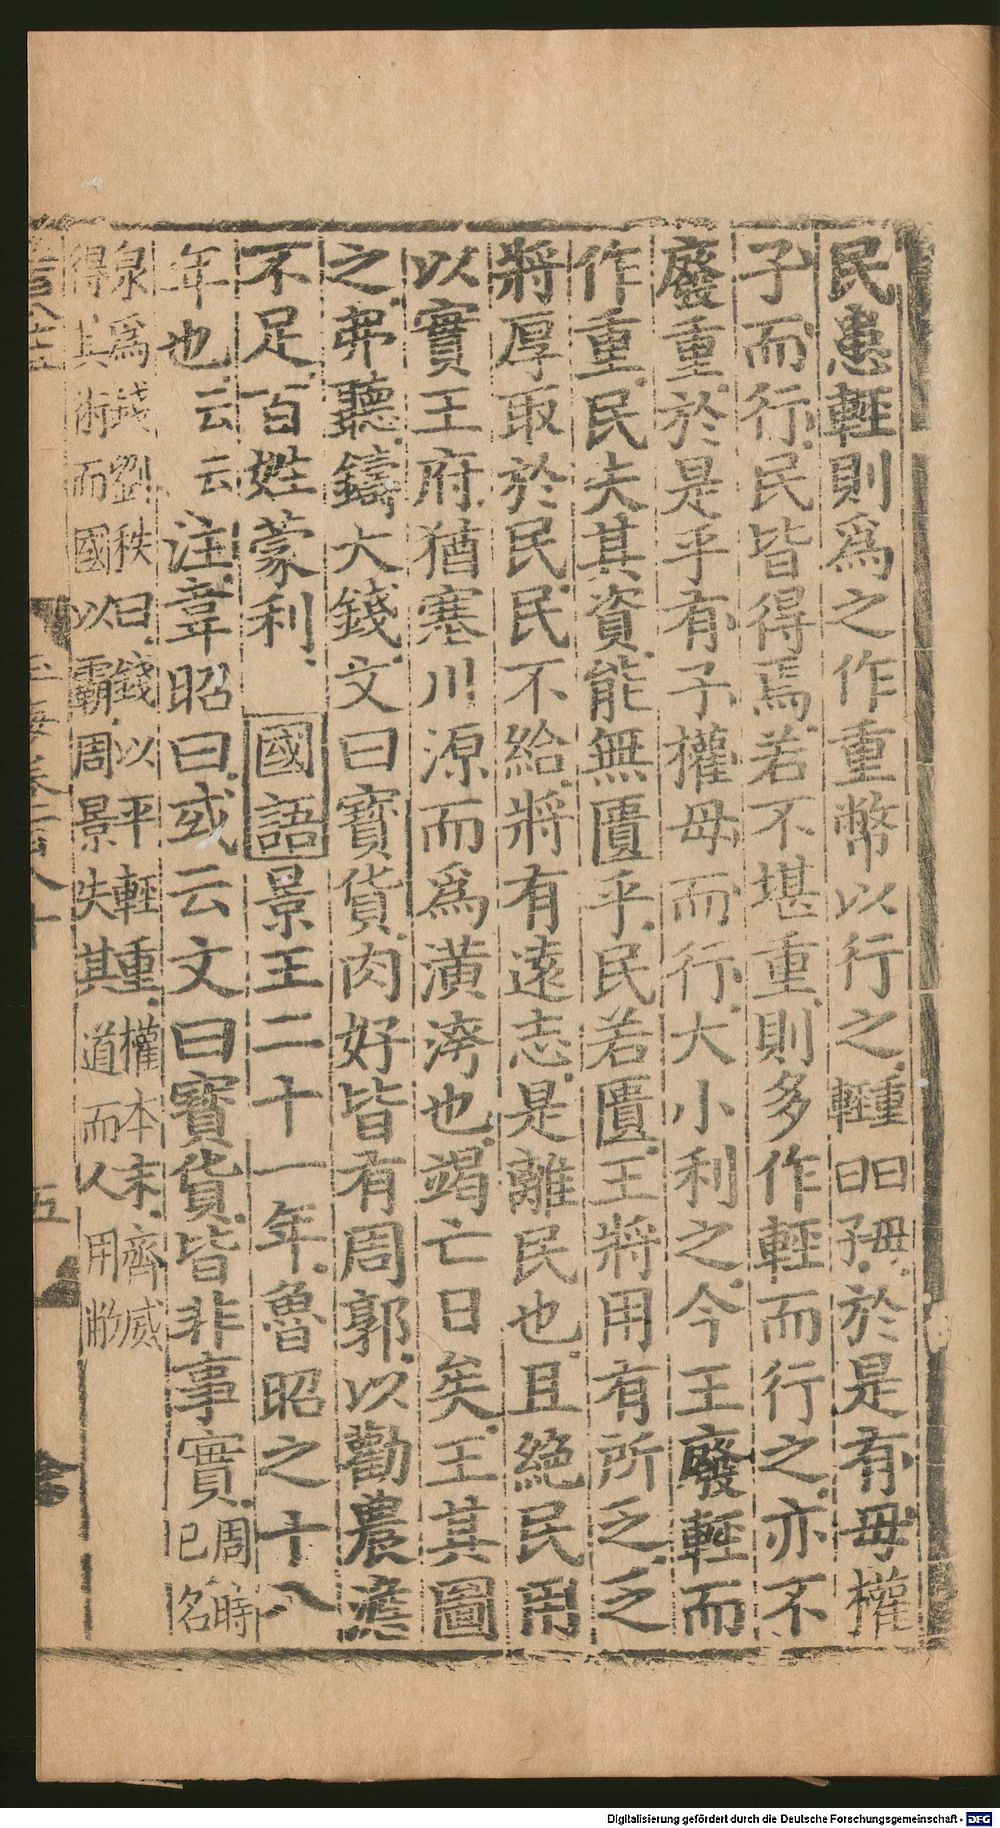 民患輕則爲之作重幣以行之輕曰子重曰母於是有母權
子而行民皆得焉若不堪重則多作輕而行之亦不
廢重於是乎有子權母而行大小利之今王廢輕而
作重民失其資能無匱乎民若匱王將用有所乏乏
將厚取於民民不給將有遠志是離民也且絶民用
以實王府猶塞川源而爲潢洿也竭亡日矣王其圖
之弗聽鑄大錢文曰寶貨肉好皆有周郭以勸農澹
不足百姓蒙利 國語景王二十一年魯昭之十八
年也云云注韋昭曰或云文曰寳貨皆非事實周時已名
泉爲錢劉秩曰錢以平輕重權本末齊威
得其術而國以霸周景失其道而人用㢢
玉海卷一百八十
五
Digitalisierung gefördert durch die Deutsche Forschungsgemeinschaft - DFG